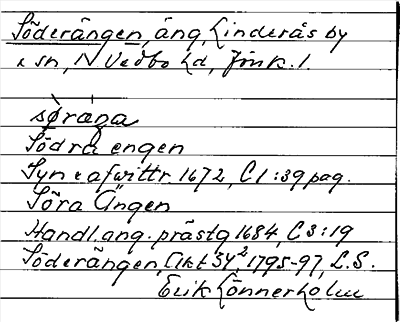 Söderängen, äng, Linderås by
& sn, N Vedbo hd, Jönk. l.
søraŋa
Södra engen
Syn & afwittr. 1672, C 1:39 pag.
Söra Ängen
Handl. ang. prästg 1684, C 3:19
Söderängen, Akt 34² 1795-97, L.S.
Erik Lönnerholm